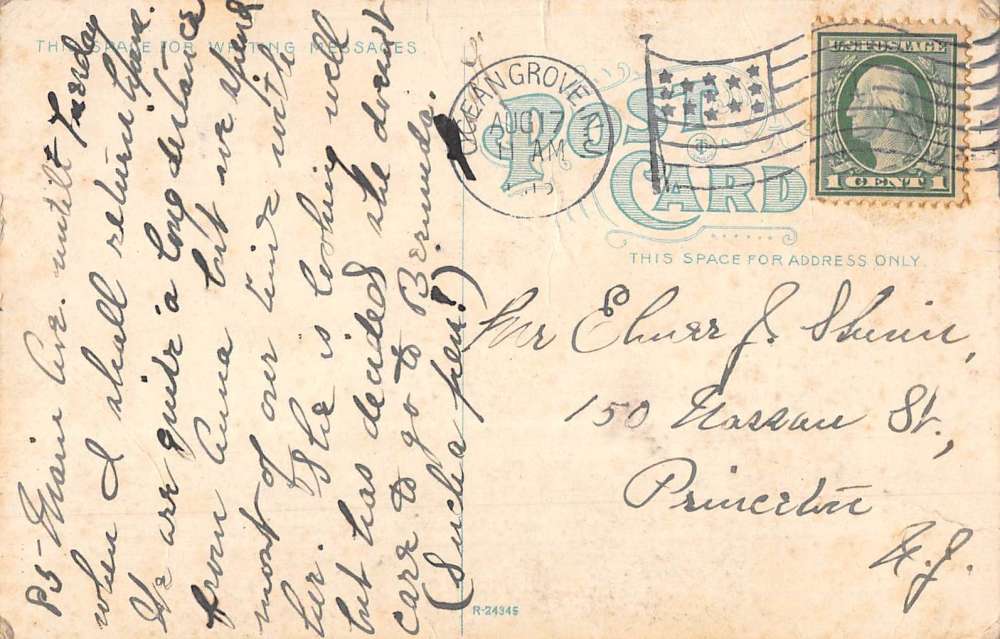 THIS SPACE FOR WRITING MESSAGES
85 - Main Ave. untill Tuesday
when I shall return home.
We are quite a long distance
from Anna but we spend
most of our time with
her. She is looking well
but has decided she doesnt
care to go to Bermuda.
(Such a pen!)
OCEAN GROVE N.J.
AUG 17
11 AM
POST CARD
U.S. POSTAGE
1 CENT 1
THIS SPACE FOR ADDRESS ONLY.
Mr Elmer J. Shinn,
150 Nassau St.,
Princeton
N.J.
R-24345